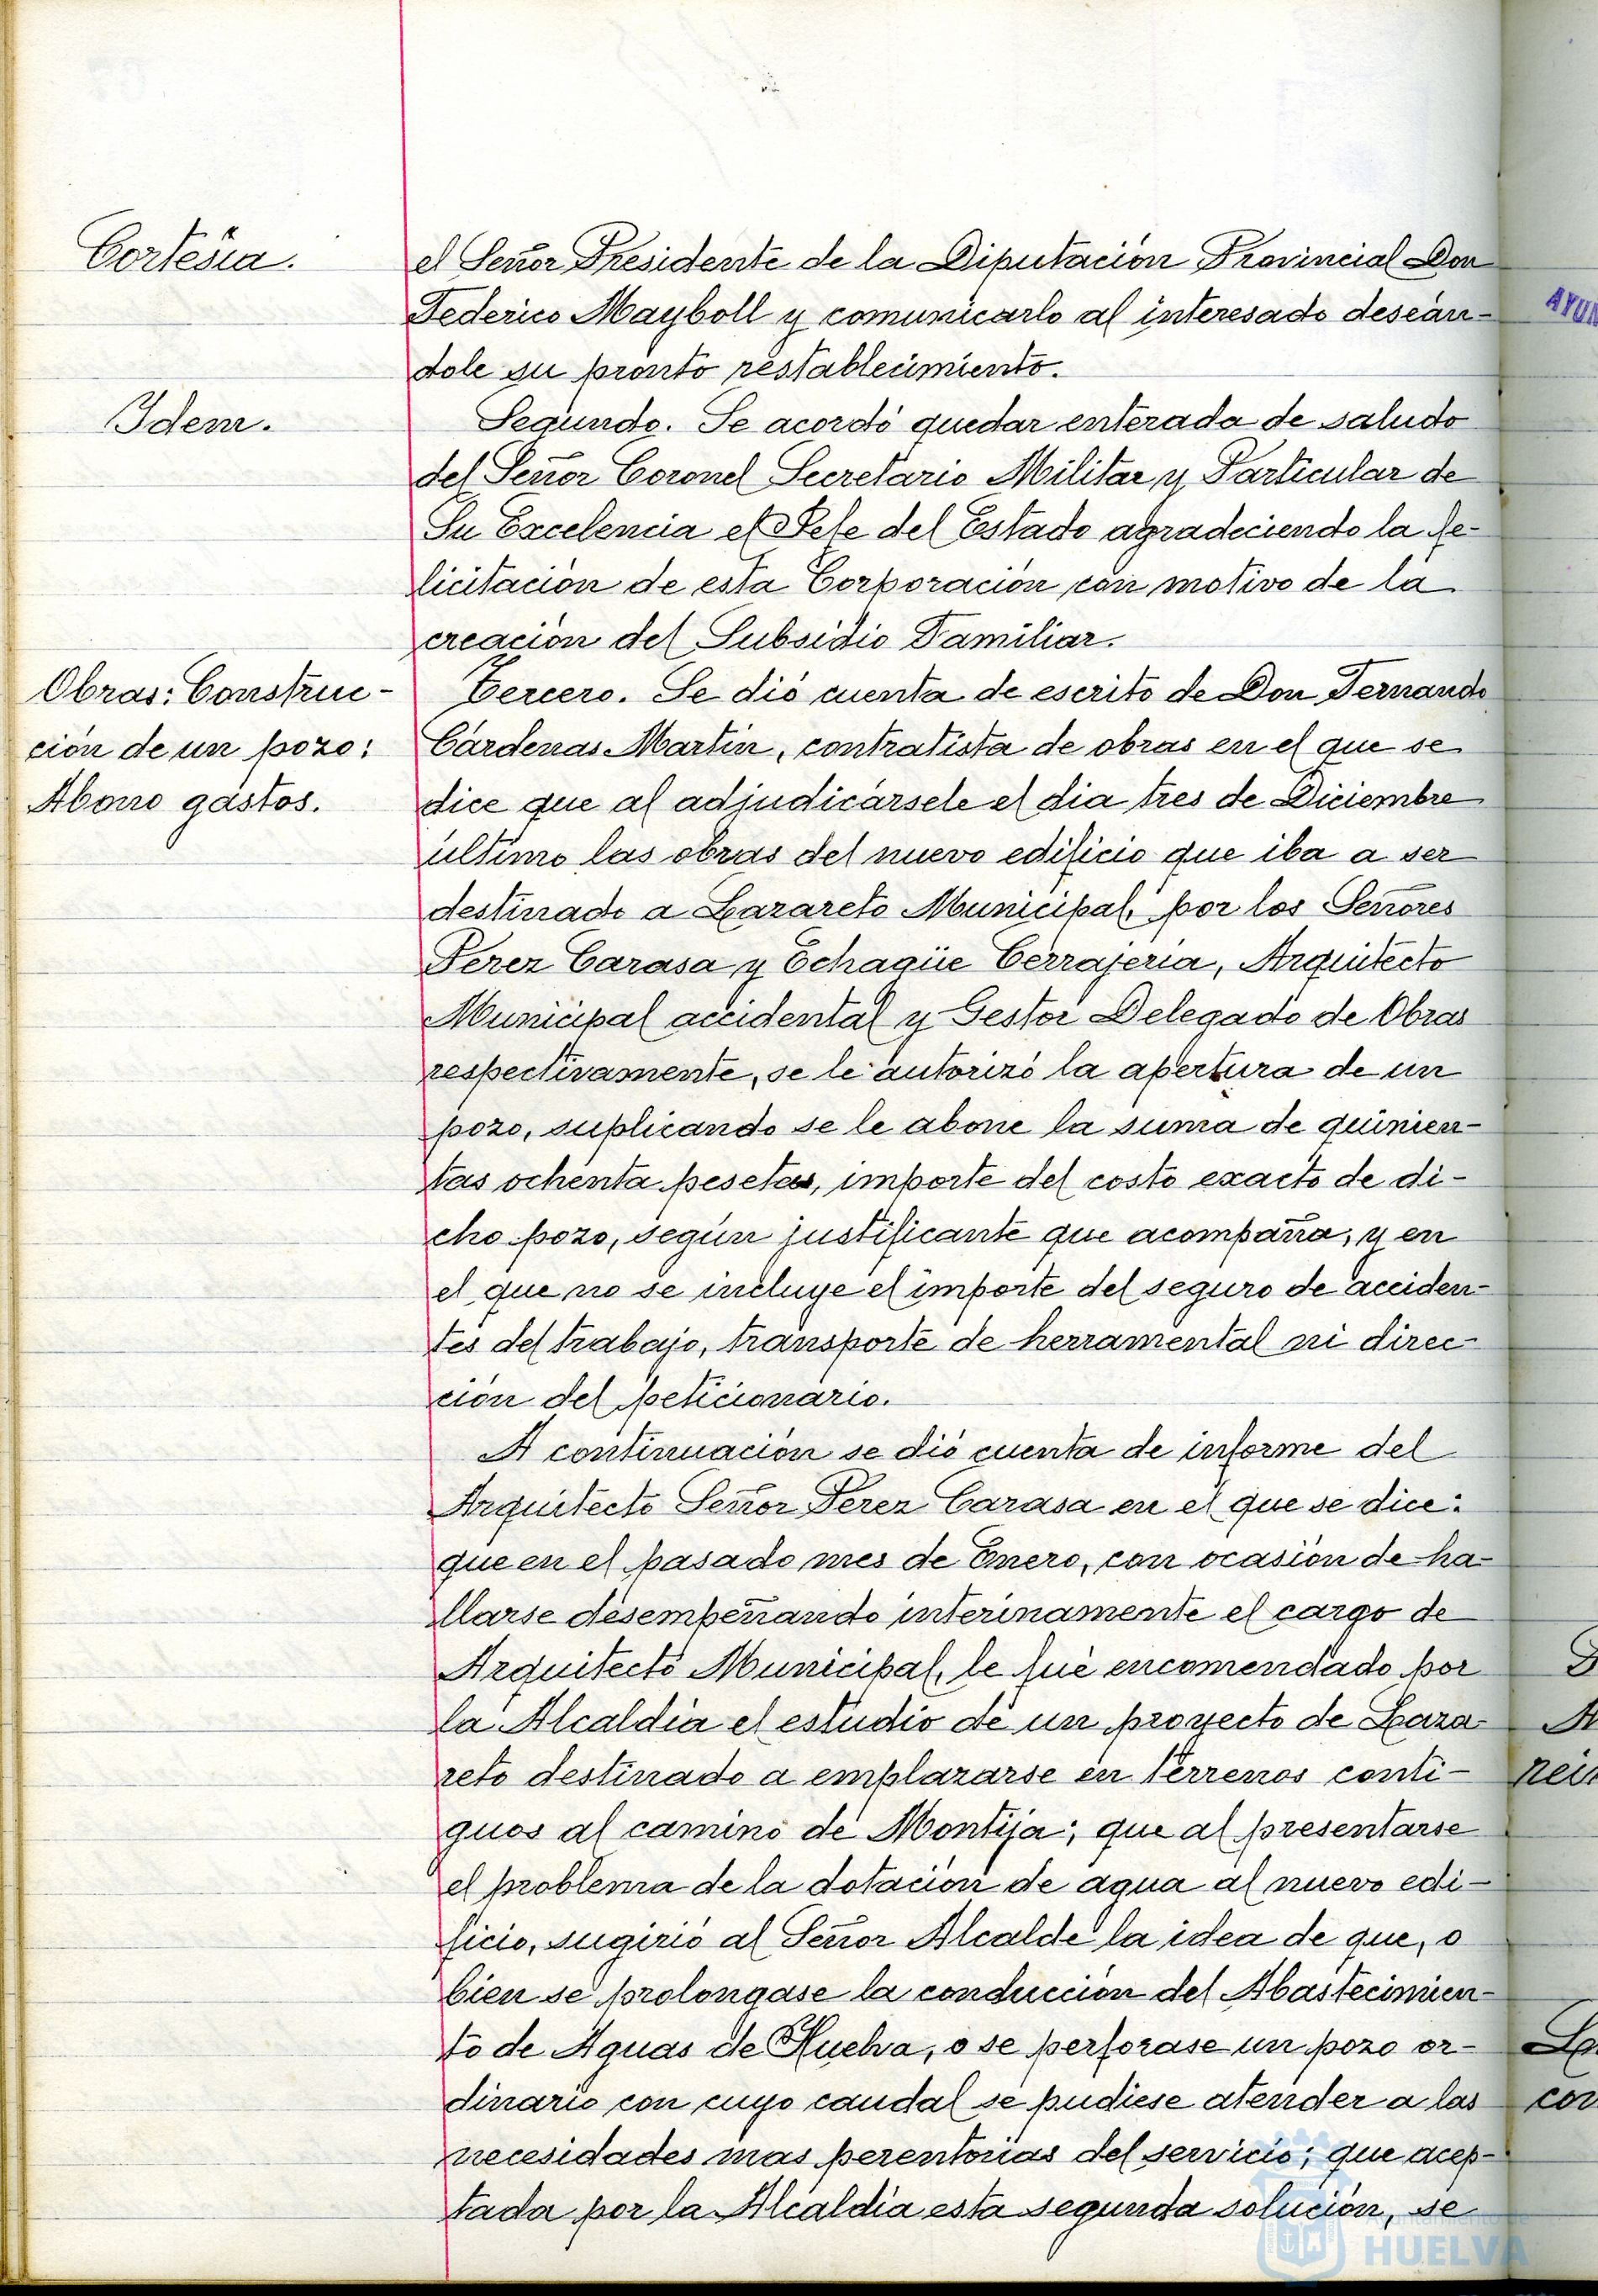 Cortesia.
el Señor Presidente de la Diputación Provincial Don
Federico Mayboll y comunicarlo al interesado deseán-
dole su pronto restablecimiento.
Idem.
Segundo. Se acordó quedar enterada de saludo
del Señor Coronel Secretario Militar y Particular de
Su Excelencia el Jefe del Estado agradeciendo la fe-
licitación de esta Corporación con motivo de la
creación del Subsidio Familiar.
Obras: Construc-
ción de un pozo:
Abono gastos.
Tercero. Se dió cuenta de escrito de Don Fernando
Cárdenas Martin, contratista de obras en el que se
dice que al adjudicársele el dia tres de Diciembre
último las obras del nuevo edificio que iba a ser
destinado a Lazareto Municipal, por los Señores
Perez Carasa y Echagüe Cerrajeria, Arquitecto
Municipal accidental y Gestor Delegado de Obras
respectivamente, se le autorizó la apertura de un
pozo, suplicando se le abone la suma de quinien-
tas ochenta pesetas, importe del costo exacto de di-
cho pozo, según justificante que acompaña, y en
el que no se incluye el importe del seguro de acciden-
tes del trabajo, transporte de herramental ni direc-
ción del peticionario.
A continuación se dió cuenta de informe del
Arquitecto Señor Perez Carasa en el que se dice:
que en el pasado mes de Enero, con ocasión de ha-
llarse desempeñando interinamente el cargo de
Arquitecto Municipal, le fué encomendado por
la Alcaldia el estudio de un proyecto de Laza-
reto destinado a emplazarse en terrenos conti-
guos al camino de Montija; que al presentarse
el problema de la dotación de agua al nuevo edi-
ficio, sugirió al Señor Alcalde la idea de que, o
bien se prolongase la conducción del Abastecimien-
to de Aguas de Huelva, o se perforase un pozo or-
dinario con cuyo caudal se pudiese atender a las
necesidades mas perentorias del servicio; que acep-
tada por la Alcaldia esta segunda solución, se
AYUN
HUELVA